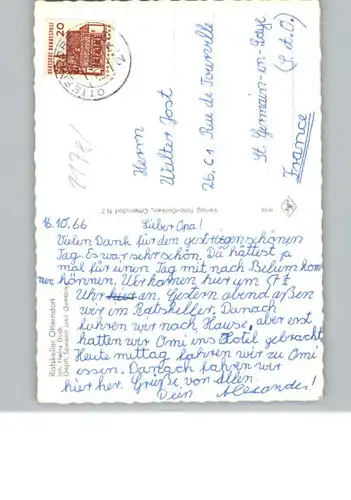 16.10.66
Lieber Opa!
Vielen Dank für den gestrigen schönen
Tag. Es war sehr schön. Du hättest ja
mal für einen Tag mit nach Belum kom
men können. Wir kamen hier um
Uhr hier an. Gestern abend aßen
wir im Ratskeller. Danach
fuhren wir nach Hause, aber erst
hatten wir Omi ins Hotel gebracht.
Heute mittag fahren wir zu Omi
essen. Danach fahren wir
hierher. Grüße von allen.
Dein Alexander!
Ratskeller Otterndorf
Inh. Heinz Bock
Verlag Foto-Gerken, Otterndorf N.E.
DEUTSCHE BUNDESPOST
20
Herrn
Walter Jost
26, C1 Rue de Tourville
St. Germain-en-Laye
(S. et O.)
France